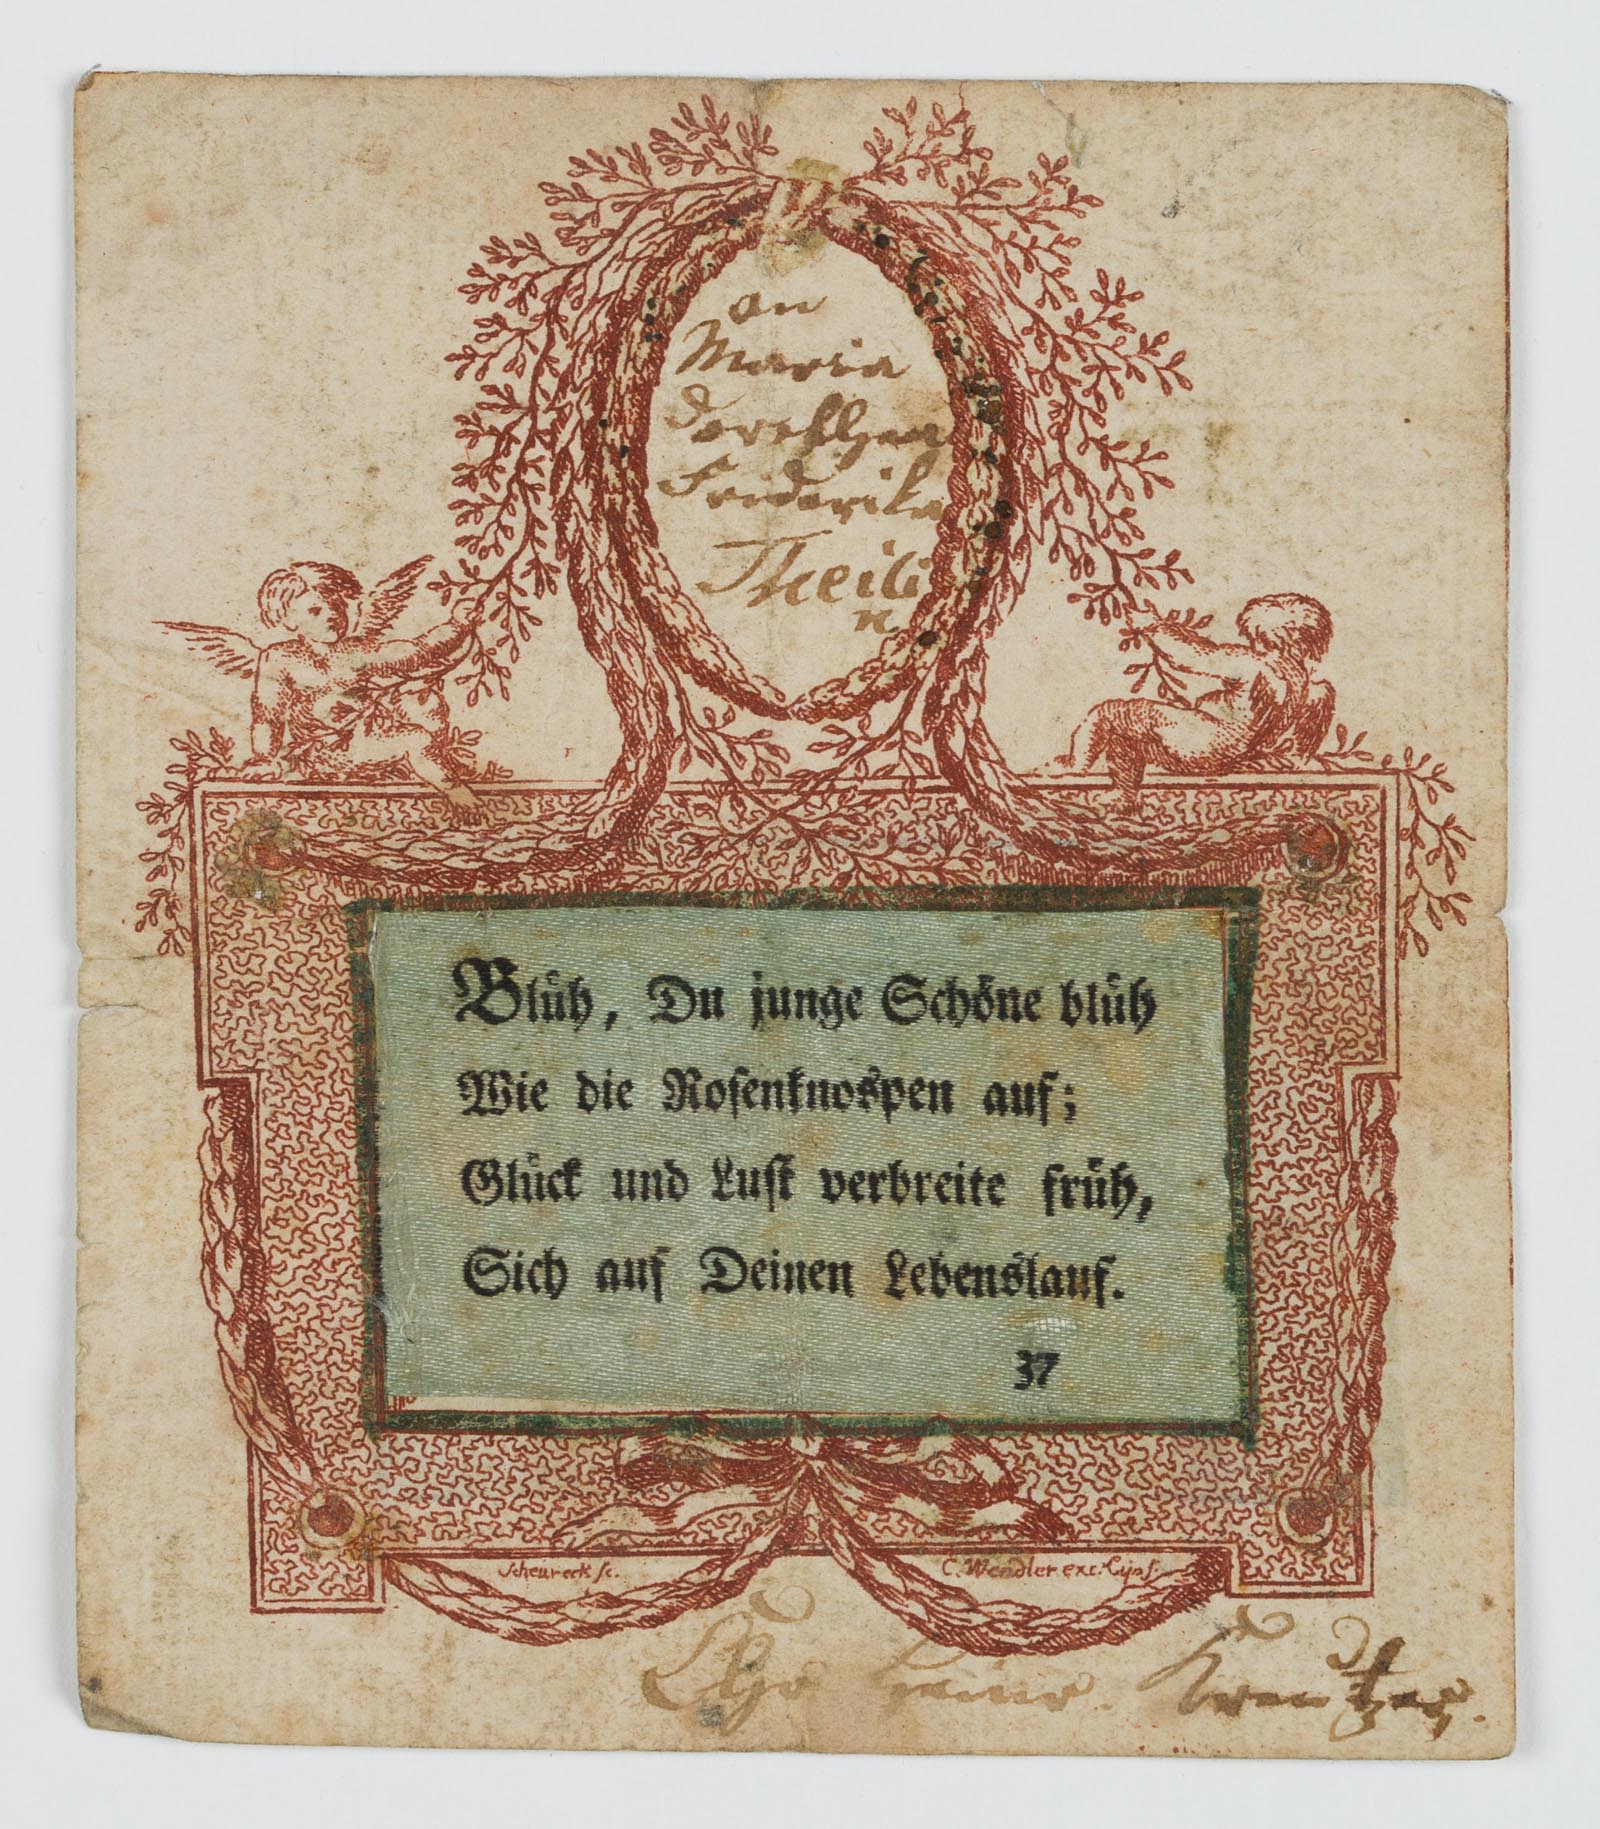 an
Maria
dorethea
Friderika
Theili
n
Blüh, Du junge Schöne blüh
Wie die Rosenknospen auf;
Glück und Lust verbreite früh,
Sich auf Deinen Lebenslauf.
37
Scheureck sc.
C. Wendler exc. Lips.
Kreutzer.